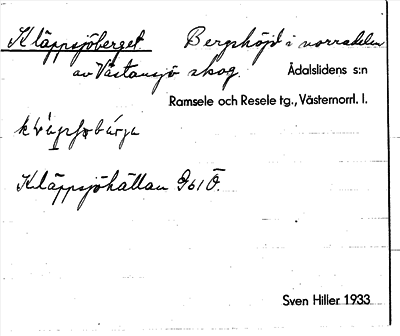 Kläppsjöberget. Bergshöjd i norra delen
av Västansjö skog. Ådalslidens s:n
Ramsele och Resele tg., Västernorrl. l.
Kläppsjöhällan 961 Ö.
Sven Hiller 1933